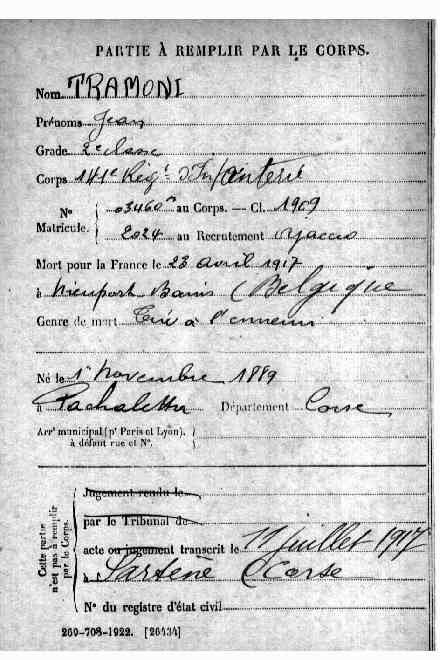 PARTIE À REMPLIR PAR LE CORPS.
Nom TRAMONI
Prénoms Jean
Grade 2e classe
Corps 141e Régt d'Infanterie
N° Matricule. 03460 au Corps. — Cl. 1909
2024 au Recrutement Ajaccio
Mort pour la France le 23 avril 1917
à Nieuport Bains (Belgique
Genre de mort Tué à l'ennemi
Né le 1r Novembre 1889
à Département Corse
Arrt municipal (pr Paris et Lyon),
à défaut rue et N°.
Cette partie n'est pas à remplir par le Corps.
Jugement rendu le
par le Tribunal de
acte ou jugement transcrit le 11 juillet 1917
à Sartène (Corse
N° du registre d'état civil
269-708-1922. [26434]